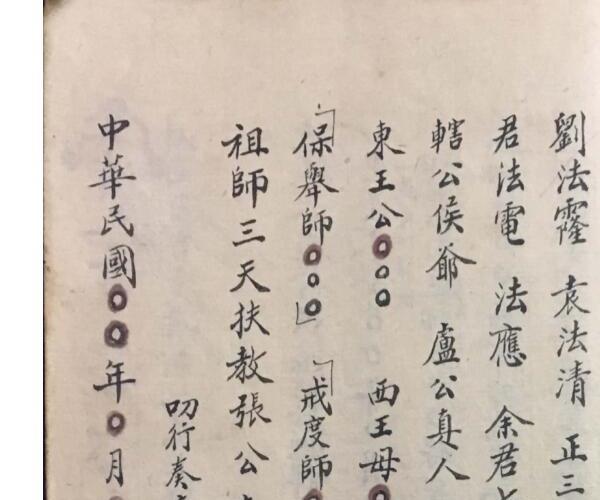 劉法霳 袁法清 正三
君法電 法應 余君
轄公侯爺 盧公真人
東王公○○○ 西王母○
「保舉師○○○」 「戒度師○
祖師三天扶教張公
叨行奏
中華民國○○年○月